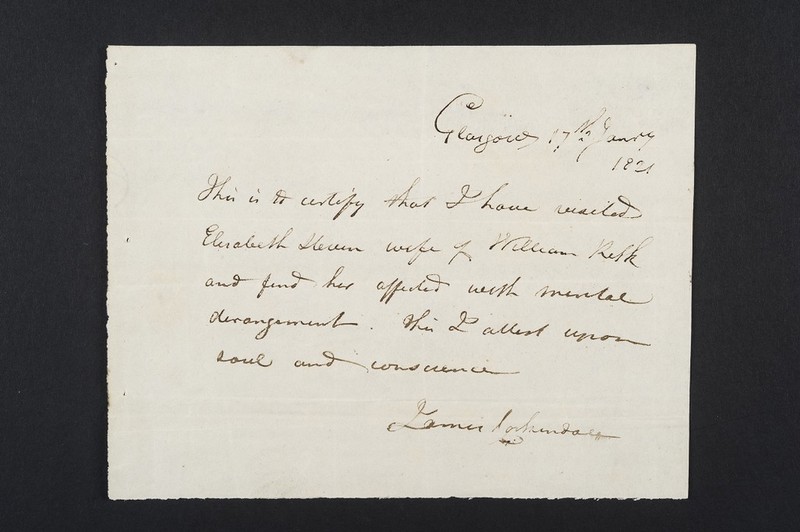 Glasgow 17th Janry
1821
This is to certify that I have visited
Elisabeth Steven wife of William
and find her affected with mental
derangement. This I attest upon
soul and conscience
James Corkindale